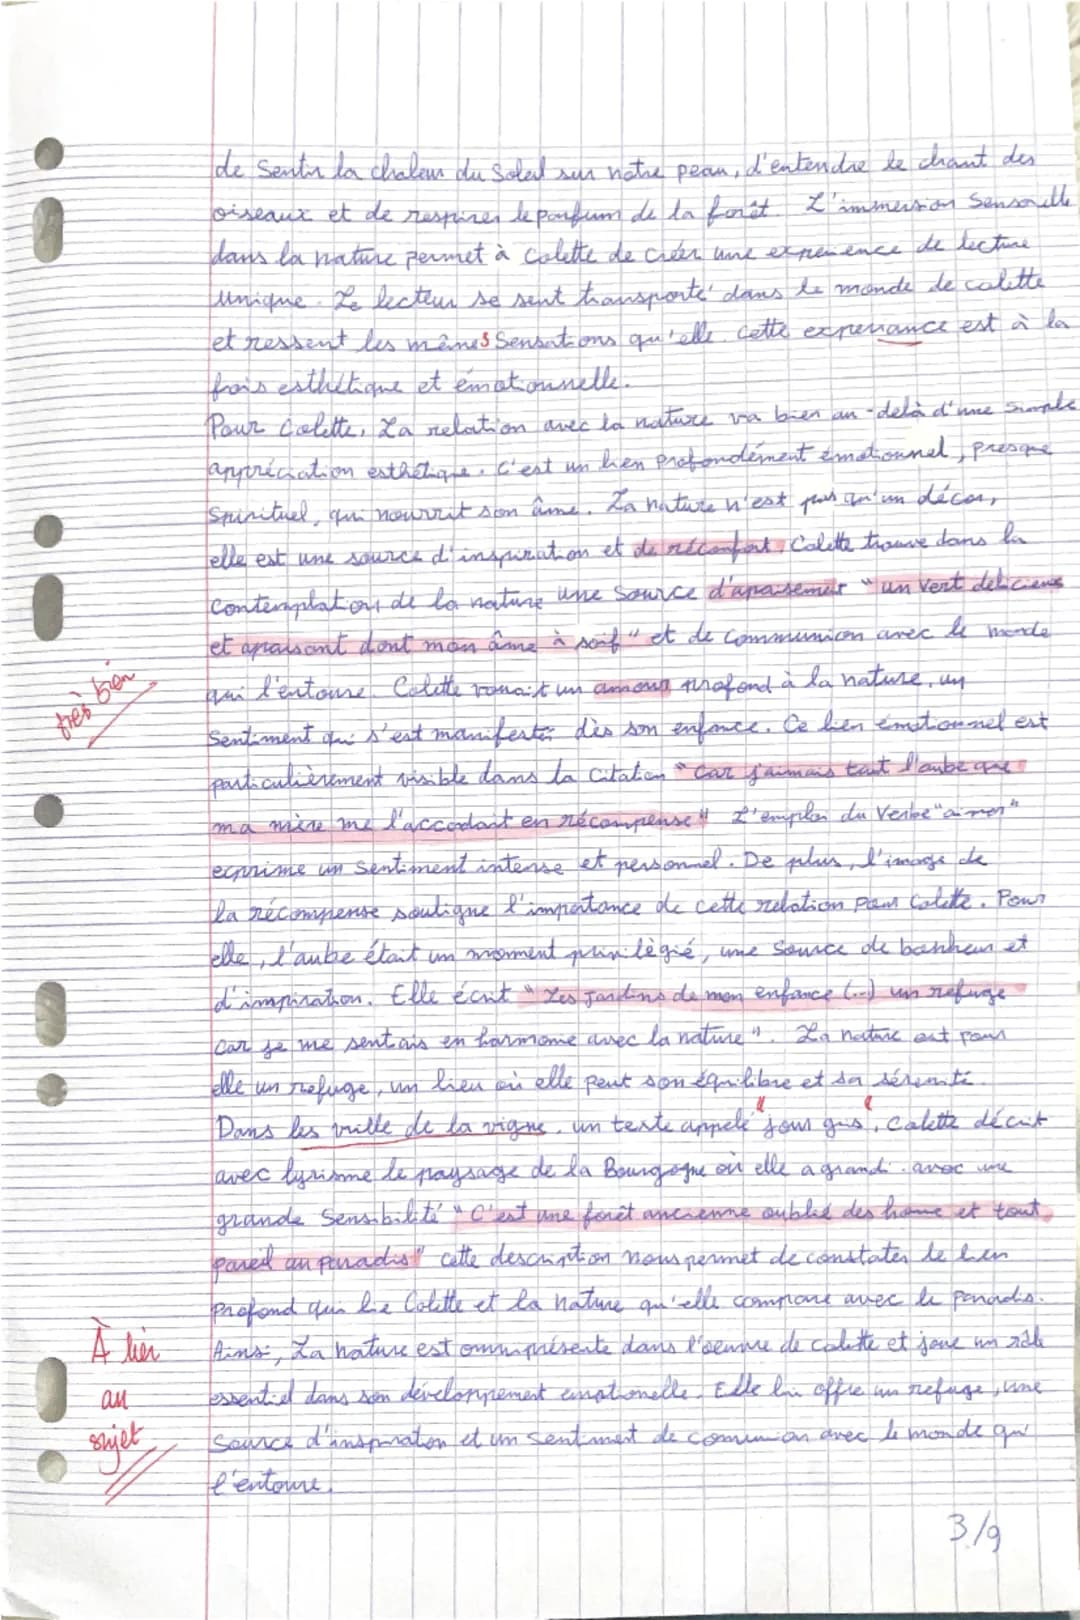 de Sentir la chaleur du Soleil sur notre peau, d'entendre le chant des
oiseaux et de respirer le parfum de la forêt. L'immersion Sensorielle
dans la nature permet à Colette de créer une expérience de lecture
unique. Le lecteur se sent transporté dans le monde de colette
et ressent les mêmes Sensations qu'elle. Cette experiance est à la
fois esthétique et émotionnelle.
Pour Colette, La relation avec la nature va bien au-delà d'une simple
appréciation esthétique. C'est un lien profondément émotionnel, presque
Spirituel, qui nourrit son âme. La nature n'est pas qu'un décor,
elle est une source d'inspiration et de réconfort. Colette trouve dans la
contemplation de la nature une Source d'apaisement "un Vert délicieux
et apaisant dont mon âme à soif" et de communion avec le monde
très bien
qui l'entoure. Colette vouait un amour profond à la nature, un
Sentiment qui s'est manifesté dès son enfance. Ce lien émotionnel est
particulièrement visible dans la citation "Car j'aimais tant l'aube que
ma mère me l'accodait en récompense" L'emploi du Verbe "aimer"
exprime un Sentiment intense et personnel. De plus, l'image de
la récompense souligne l'importance de cette relation pour Colette. Pour
elle, l'aube était un moment privilègié, une Source de bonheur et
d'impiration. Elle écrit "Les Jardins de mon enfance (...) un refuge
car je me sentais en harmonie avec la nature". La nature est pour
elle un refuge, un lieu où elle peut son équilibre et sa sérénité.
Dans les vrille de la vigne, un texte appelé "jour gris", Colette décrit
avec lyrisme le paysage de la Bourgogne où elle a grandi. avec une
grande Sensibilité "C'est une forêt ancienne oublié des home et tout
pareil au paradis" cette description nous permet de constater le lien
Profond qui lie Colette et la nature qu'elle compare avec le paradis.
À lier au sujet
Ainsi, La nature est omniprésente dans l'oeuvre de colette et joue un rôle
essentiel dans son développement emotionelle. Elle lui offre un refuge, une
Source d'inspiration et un Sentiment de comunion avec le monde qui
l'entoure.
3/9